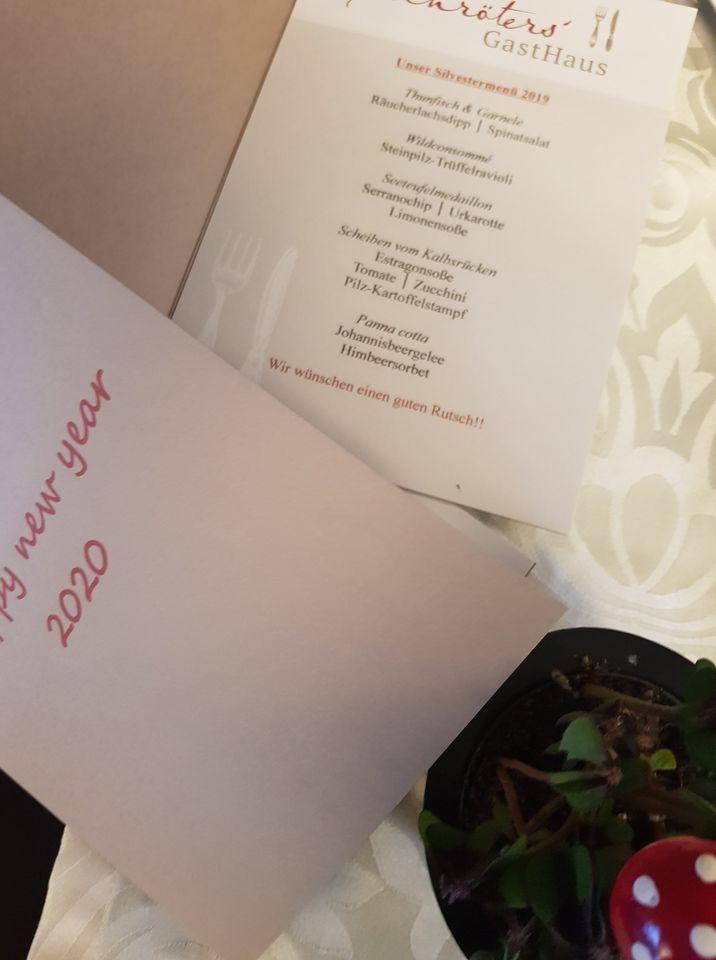 GastHaus
Unser Silvestermenü 2019
Thunfisch & Garnele
Räucherlachsdipp | Spinatsalat
Wildconsommé
Steinpilz-Trüffelravioli
Seeteufelmedaillon
Serranochip | Urkarotte
Limonensoße
Scheiben vom Kalbsrücken
Estragonsoße
Tomate | Zucchini
Pilz-Kartoffelstampf
Panna cotta
Johannisbeergelee
Himbeersorbet
Wir wünschen einen guten Rutsch!!
new year
2020